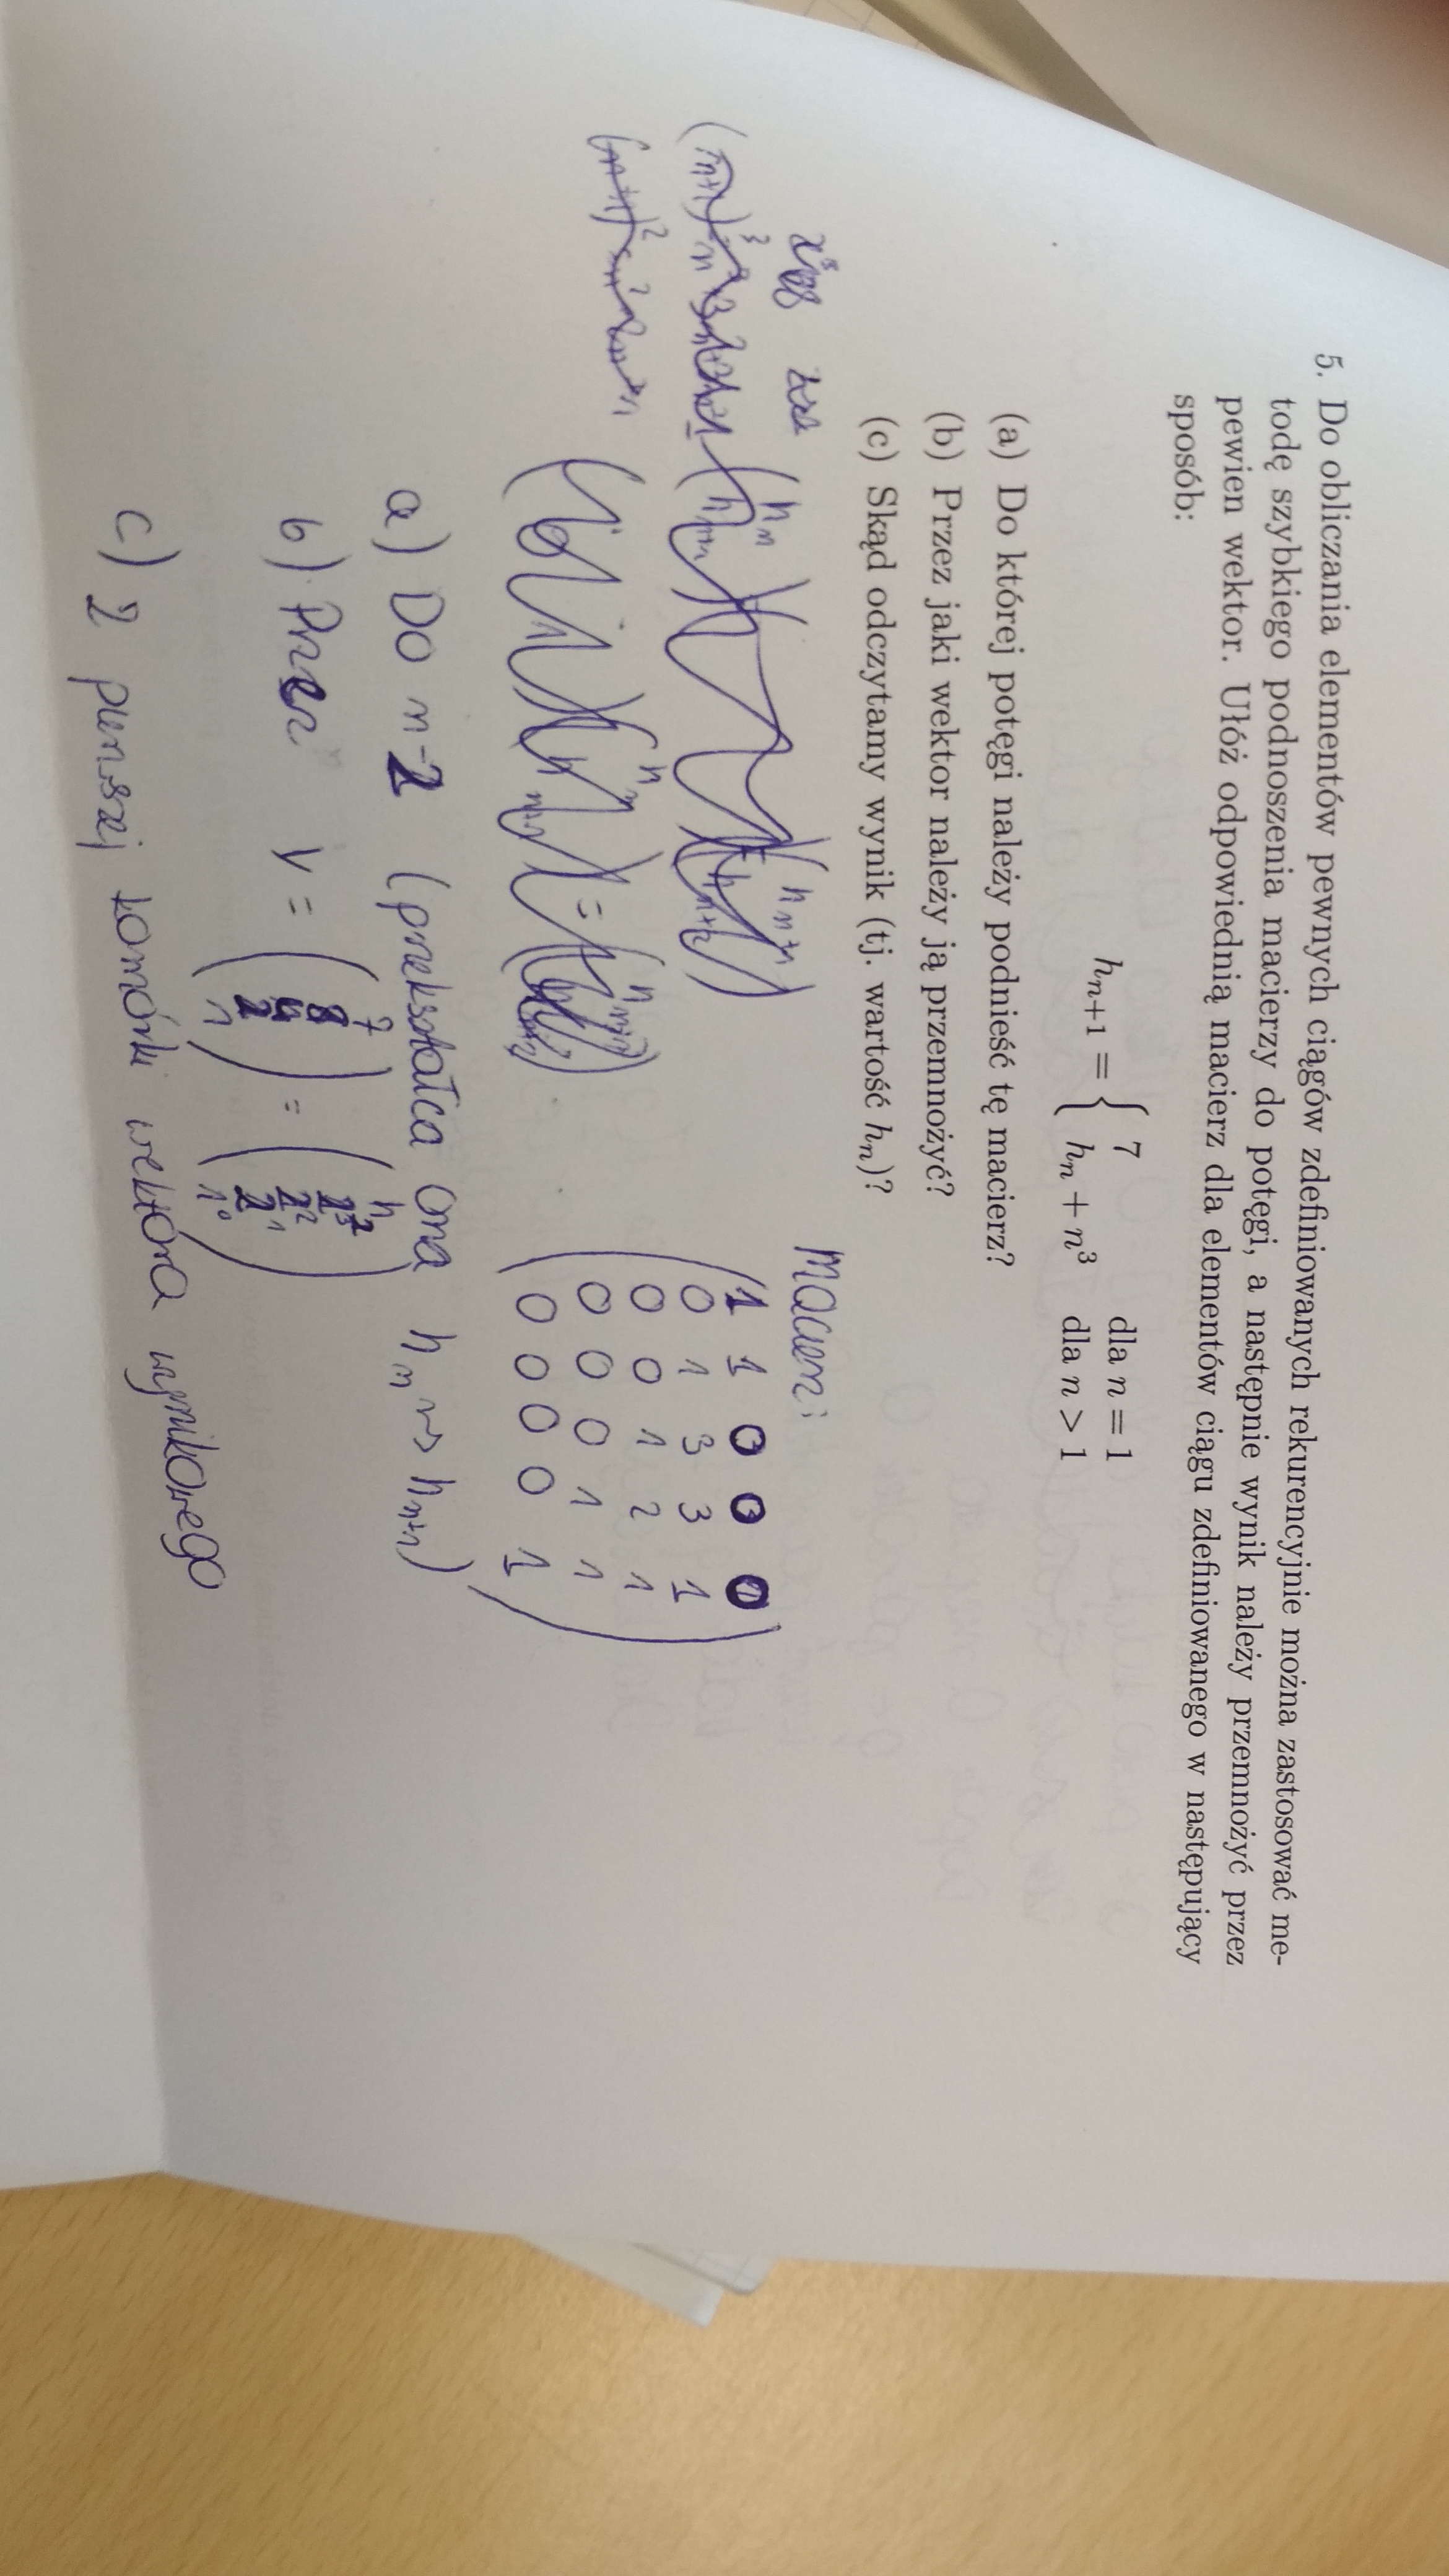 5. Do obliczania elementów pewnych ciągów zdefiniowanych rekurencyjnie można zastosować me-
todę szybkiego podnoszenia macierzy do potęgi, a następnie wynik należy przemnożyć przez
pewien wektor. Ułóż odpowiednią macierz dla elementów ciągu zdefiniowanego w następujący
sposób:
h_{n+1} = { 7 dla n = 1
h_n + n³ dla n > 1
(a) Do której potęgi należy podnieść tę macierz?
(b) Przez jaki wektor należy ją przemnożyć?
(c) Skąd odczytamy wynik (tj. wartość h_n)?
Macierz:
1 1 0 0 0
0 1 3 3 1
0 0 1 2 1
0 0 0 1 1
0 0 0 0 1
a) Do n-2 (przekształca ona h_n ~> h_{n+1})
b) Przez v = (7 8 4 2 1) = (h_2 2³ 2² 2¹ 1⁰)
c) z pierwszej komórki wektora wynikowego